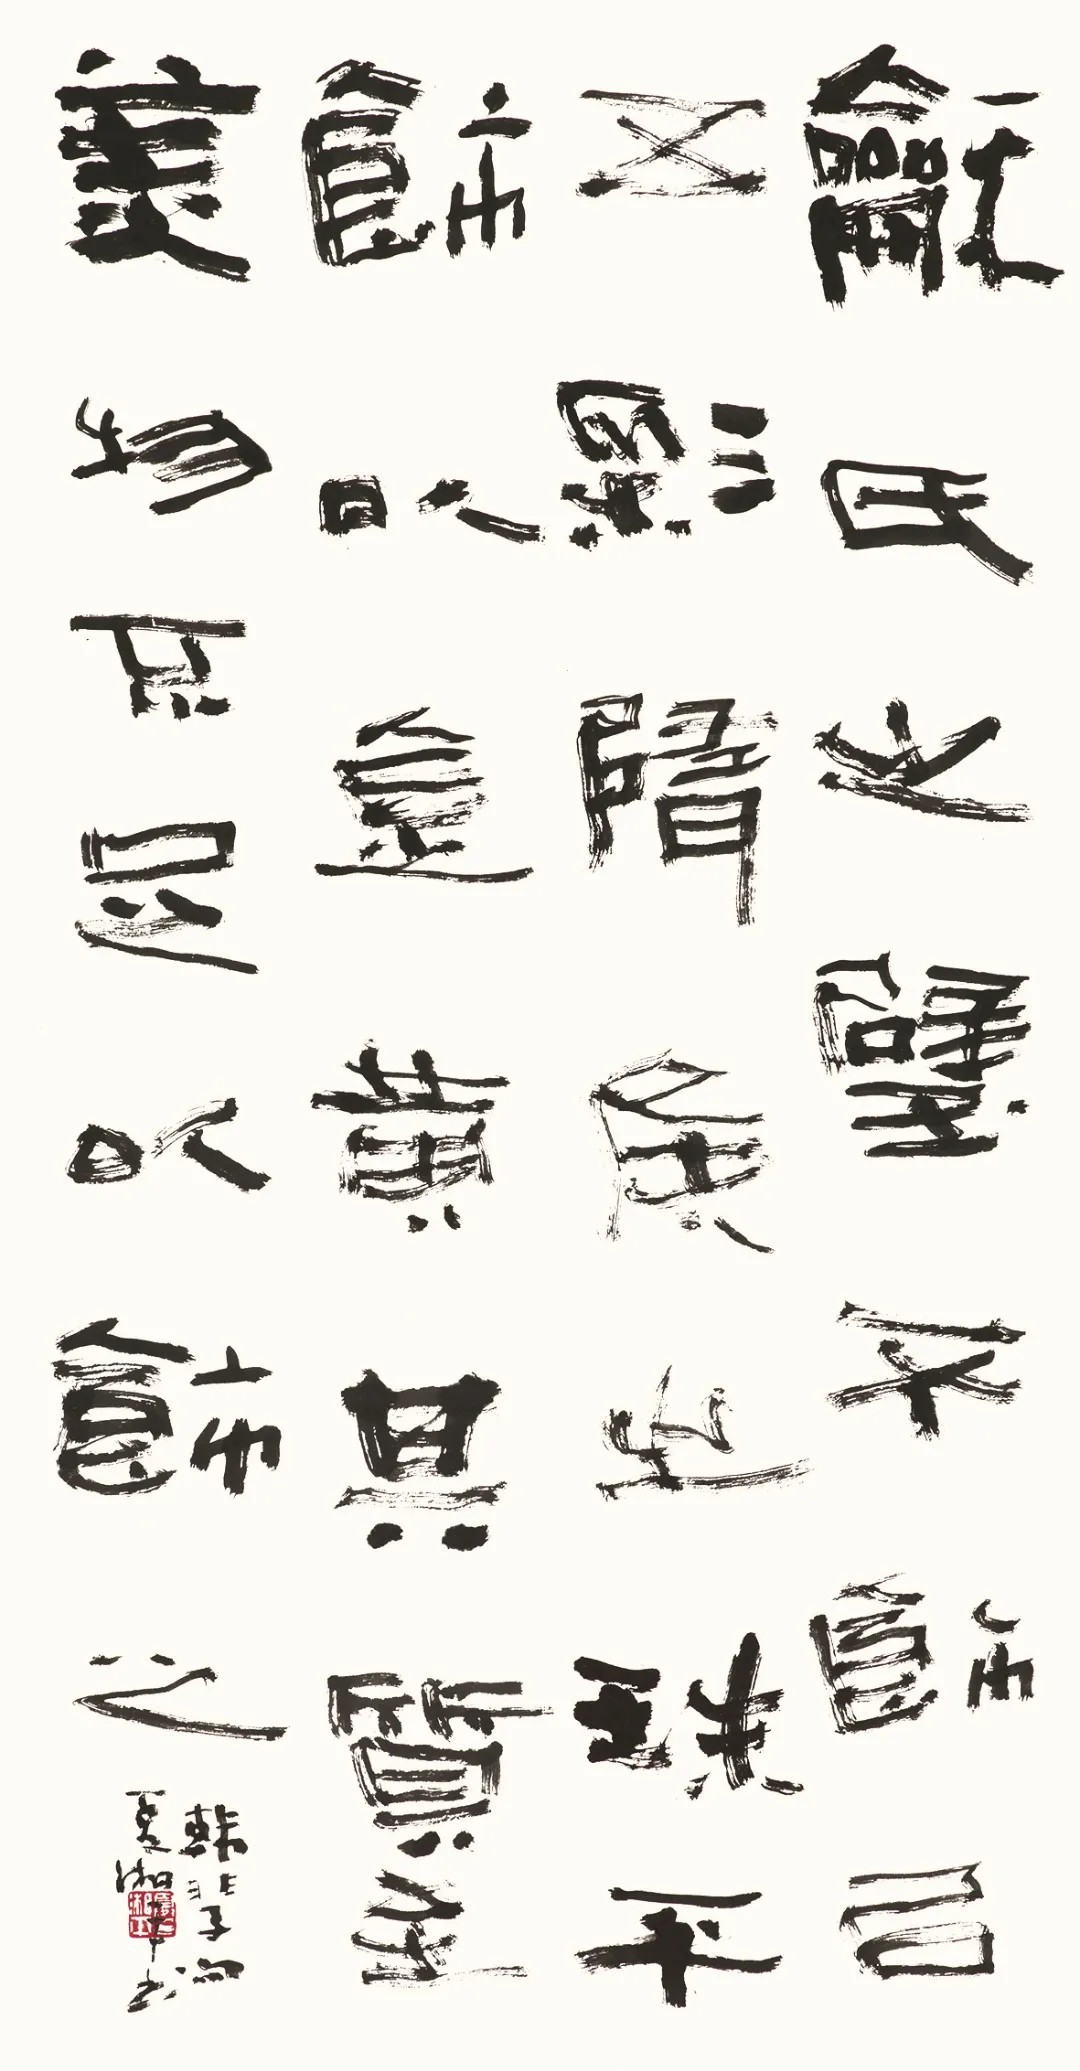 龢氏之璧不飾㠯
五彩隋侯之珠不
飾以金黃其質至
美物不足以飾之
韓非子句
夏湘平書